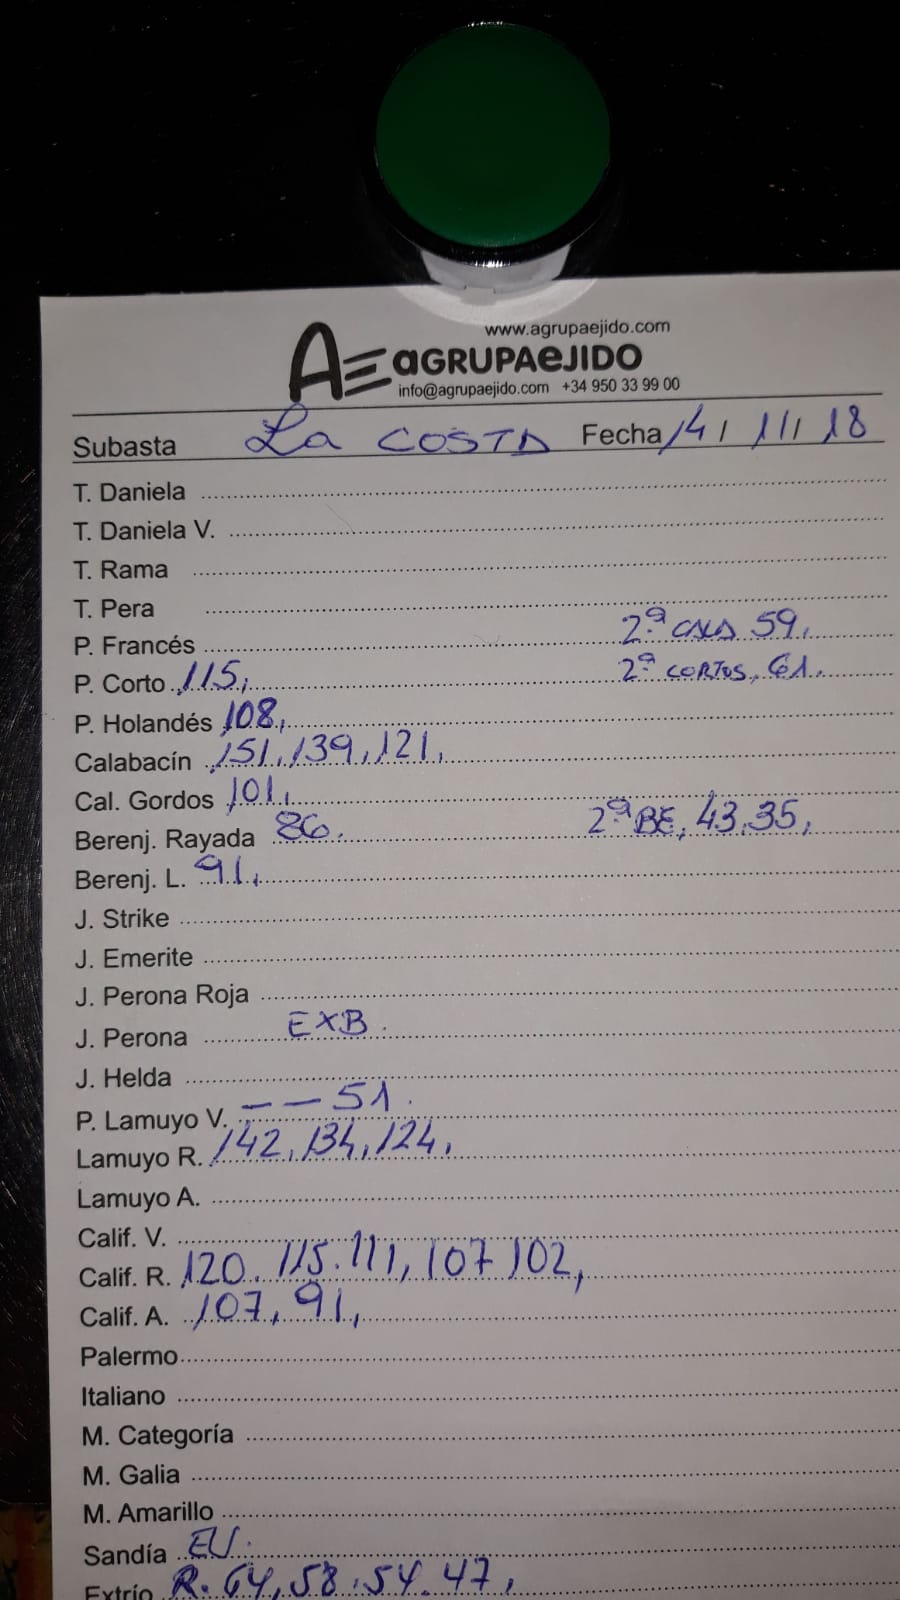 www.agrupaejido.com
AE aGRUPAeJIDO
info@agrupaejido.com +34 950 33 99 00
Subasta La COSTA Fecha 14/11/18
T. Daniela
T. Daniela V.
T. Rama
T. Pera
P. Francés 2ª CALA 59,
P. Corto 115, 2ª CORTOS, 61.
P. Holandés 108,
Calabacín 151,139,121,
Cal. Gordos 101,
Berenj. Rayada 86. 2ª BE, 43.35,
Berenj. L. 91,
J. Strike
J. Emerite
J. Perona Roja
J. Perona EXB.
J. Helda
P. Lamuyo V. — — 51.
Lamuyo R. 142, 134, 124,
Lamuyo A.
Calif. V.
Calif. R. 120. 115. 111, 107 102,
Calif. A. 107, 91,
Palermo
Italiano
M. Categoría
M. Galia
M. Amarillo
Sandía EU.
Extrío R. 64, 58. 54. 47,